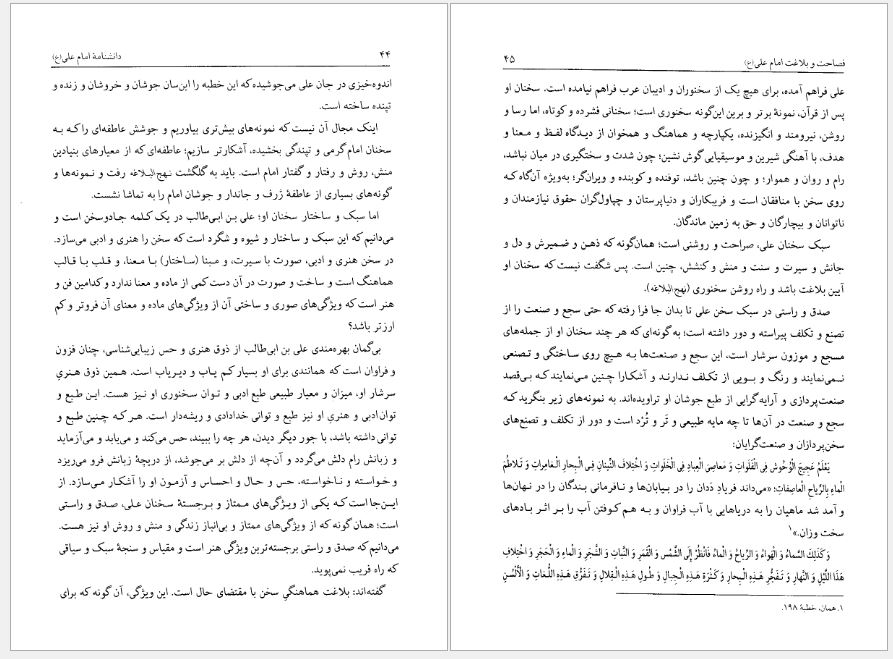 ۴۴ دانشنامهٔ امام علی(ع)
اندوه‌خیزی در جان علی می‌جوشیده که این خطبه را این‌سان جوشان و خروشان و زنده و
تپنده ساخته است.
اینک مجال آن نیست که نمونه‌های بیش‌تری بیاوریم و جوشش عاطفه‌ای را که به
سخنان امام گرمی و تپندگی بخشیده، آشکارتر سازیم؛ عاطفه‌ای که از معیارهای بنیادین
منش، روش و رفتار و گفتار امام است. باید به گلگشت نهج‌البلاغه رفت و نمونه‌ها و
گونه‌های بسیاری از عاطفهٔ ژرف و جاندار و جوشان امام را به تماشا نشست.
اما سبک و ساختار سخنان او؛ علی بن ابی‌طالب در یک کلمه جادوسخن است و
می‌دانیم که این سبک و ساختار و شیوه و شگرد است که سخن را هنری و ادبی می‌سازد.
در سخن هنری و ادبی، صورت با سیرت، و مبنا (ساختار) با معنا، و قلب با قالب
هماهنگ است و ساخت و صورت در آن دست کمی از ماده و معنا ندارد و کدامین فن و
هنر است که ویژگی‌های صوری و ساختی آن از ویژگی‌های ماده و معنای آن فروتر و کم
ارزتر باشد؟
بی‌گمان بهره‌مندی علی بن ابی‌طالب از ذوق هنری و حس زیبایی‌شناسی، چنان فزون
و فراوان است که همانندی برای او بسیار کم یاب و دیریاب است. همین ذوق هنریِ
سرشار او، میزان و معیار طبیعی طبع ادبی و توان سخنوری او نیز هست. این طبع و
توان ادبی و هنریِ او نیز طبع و توانی خدادادی و ریشه‌دار است. هر که چنین طبع و
توانی داشته باشد، با جور دیگر دیدن، هر چه را ببیند، حس می‌کند و می‌یابد و می‌آزماید
و زبانش رام دلش می‌گردد و آن‌چه از دلش بر می‌جوشد، از دریچهٔ زبانش فرو می‌ریزد
و خواسته و ناخواسته، حس و حال و احساس و آزمون او را آشکار می‌سازد. از
این‌جا است که یکی از ویژگی‌های ممتاز و برجستهٔ سخنان علی، صدق و راستی
است؛ همان گونه که از ویژگی‌های ممتاز و بی‌انباز زندگی و منش و روش او نیز هست.
می‌دانیم که صدق و راستی برجسته‌ترین ویژگی هنر است و مقیاس و سنجهٔ سبک و سیاقی
که راه فریب نمی‌پوید.
گفته‌اند: بلاغت هماهنگیِ سخن با مقتضای حال است. این ویژگی، آن گونه که برای
فصاحت و بلاغت امام علی(ع) ۴۵
علی فراهم آمده، برای هیچ یک از سخنوران و ادیبان عرب فراهم نیامده است. سخنان او
پس از قرآن، نمونهٔ برتر و برین این‌گونه سخنوری است؛ سخنانی فشرده و کوتاه، اما رسا و
روشن، نیرومند و انگیزنده، یکپارچه و هماهنگ و همخوان از دیدگاه لفظ و معنا و
هدف، با آهنگی شیرین و موسیقیایی گوش نشین؛ چون شدت و سختگیری در میان نباشد،
رام و روان و هموار؛ و چون چنین باشد، توفنده و کوبنده و ویران‌گر؛ به‌ویژه آن‌گاه که
روی سخن با منافقان است و فریبکاران و دنیاپرستان و چپاول‌گران حقوق نیازمندان و
ناتوانان و بیچارگان و حق به زمین ماندگان.
سبک سخنان علی، صراحت و روشنی است؛ همان‌گونه که ذهن و ضمیرش و دل و
جانش و سیرت و سنت و منش و کنشش، چنین است. پس شگفت نیست که سخنان او
آیین بلاغت باشد و راه روشن سخنوری (نهج‌البلاغه).
صدق و راستی در سبک سخن علی تا بدان جا فرا رفته که حتی سجع و صنعت را از
تصنع و تکلف پیراسته و دور داشته است؛ به گونه‌ای که هر چند سخنان او از جمله‌های
مسجع و موزون سرشار است، این سجع و صنعت‌ها به هیچ روی ساختگی و تصنعی
نمی‌نمایند و رنگ و بویی از تکلف ندارند و آشکارا چنین می‌نمایند که بی‌قصد
صنعت‌پردازی و آرایه‌گرایی از طبع جوشان او تراویده‌اند. به نمونه‌های زیر بنگرید که
سجع و صنعت در آن‌ها تا چه مایه طبیعی و تَر و تُرد است و دور از تکلف و تصنع‌های
سخن‌پردازان و صنعت‌گرایان:
یَعْلَمُ عَجِیجَ الْوُحُوشِ فِی الْفَلَوَاتِ وَ مَعَاصِیَ الْعِبَادِ فِی الْخَلَوَاتِ وَ اخْتِلَافَ النِّینَانِ فِی الْبِحَارِ الْغَامِرَاتِ وَ تَلَاطُمَ
الْمَاءِ بِالرِّیَاحِ الْعَاصِفَاتِ؛ «می‌داند فریاد دَدان را در بیابان‌ها و نافرمانی بندگان را در نهان‌ها
و آمد شد ماهیان را به دریاهایی با آب فراوان و به هم کوفتن آب را بر اثر بادهای
سخت وزان.»۱
وَ کَذَلِکَ السَّمَاءُ وَ الْهَوَاءُ وَ الرِّیَاحُ وَ الْمَاءُ فَانْظُرْ إِلَی الشَّمْسِ وَ الْقَمَرِ وَ النَّبَاتِ وَ الشَّجَرِ وَ الْمَاءِ وَ الْحَجَرِ وَ اخْتِلَافِ
هَذَا اللَّیْلِ وَ النَّهَارِ وَ تَفَجُّرِ هَذِهِ الْبِحَارِ وَ کَثْرَةِ هَذِهِ الْجِبَالِ وَ طُولِ هَذِهِ الْقِلَالِ وَ تَفَرُّقِ هَذِهِ اللُّغَاتِ وَ الْأَلْسُنِ
۱. همان، خطبهٔ ۱۹۸.